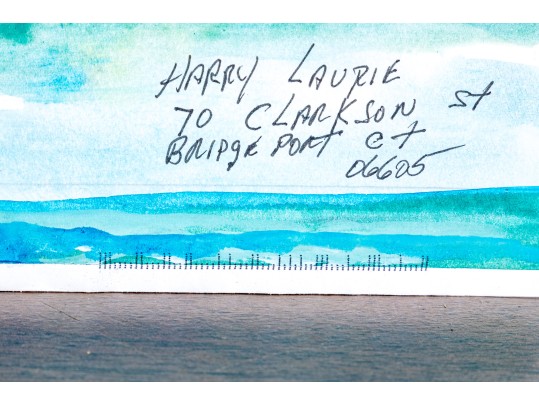 HARRY LAURIE
70 CLARKSON St
BRIDGEPORT CT
06605